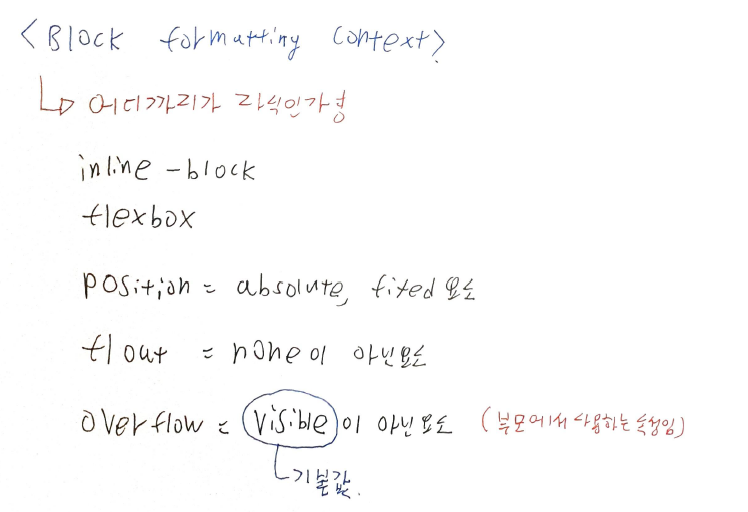 <Block formatting context>
어디까지가 자식인가영
inline-block
flexbox
position = absolute, fixed 요소
float = none이 아닌요소
overflow = visible이 아닌요소 (부모에서 사용하는 속성임)
기본값.